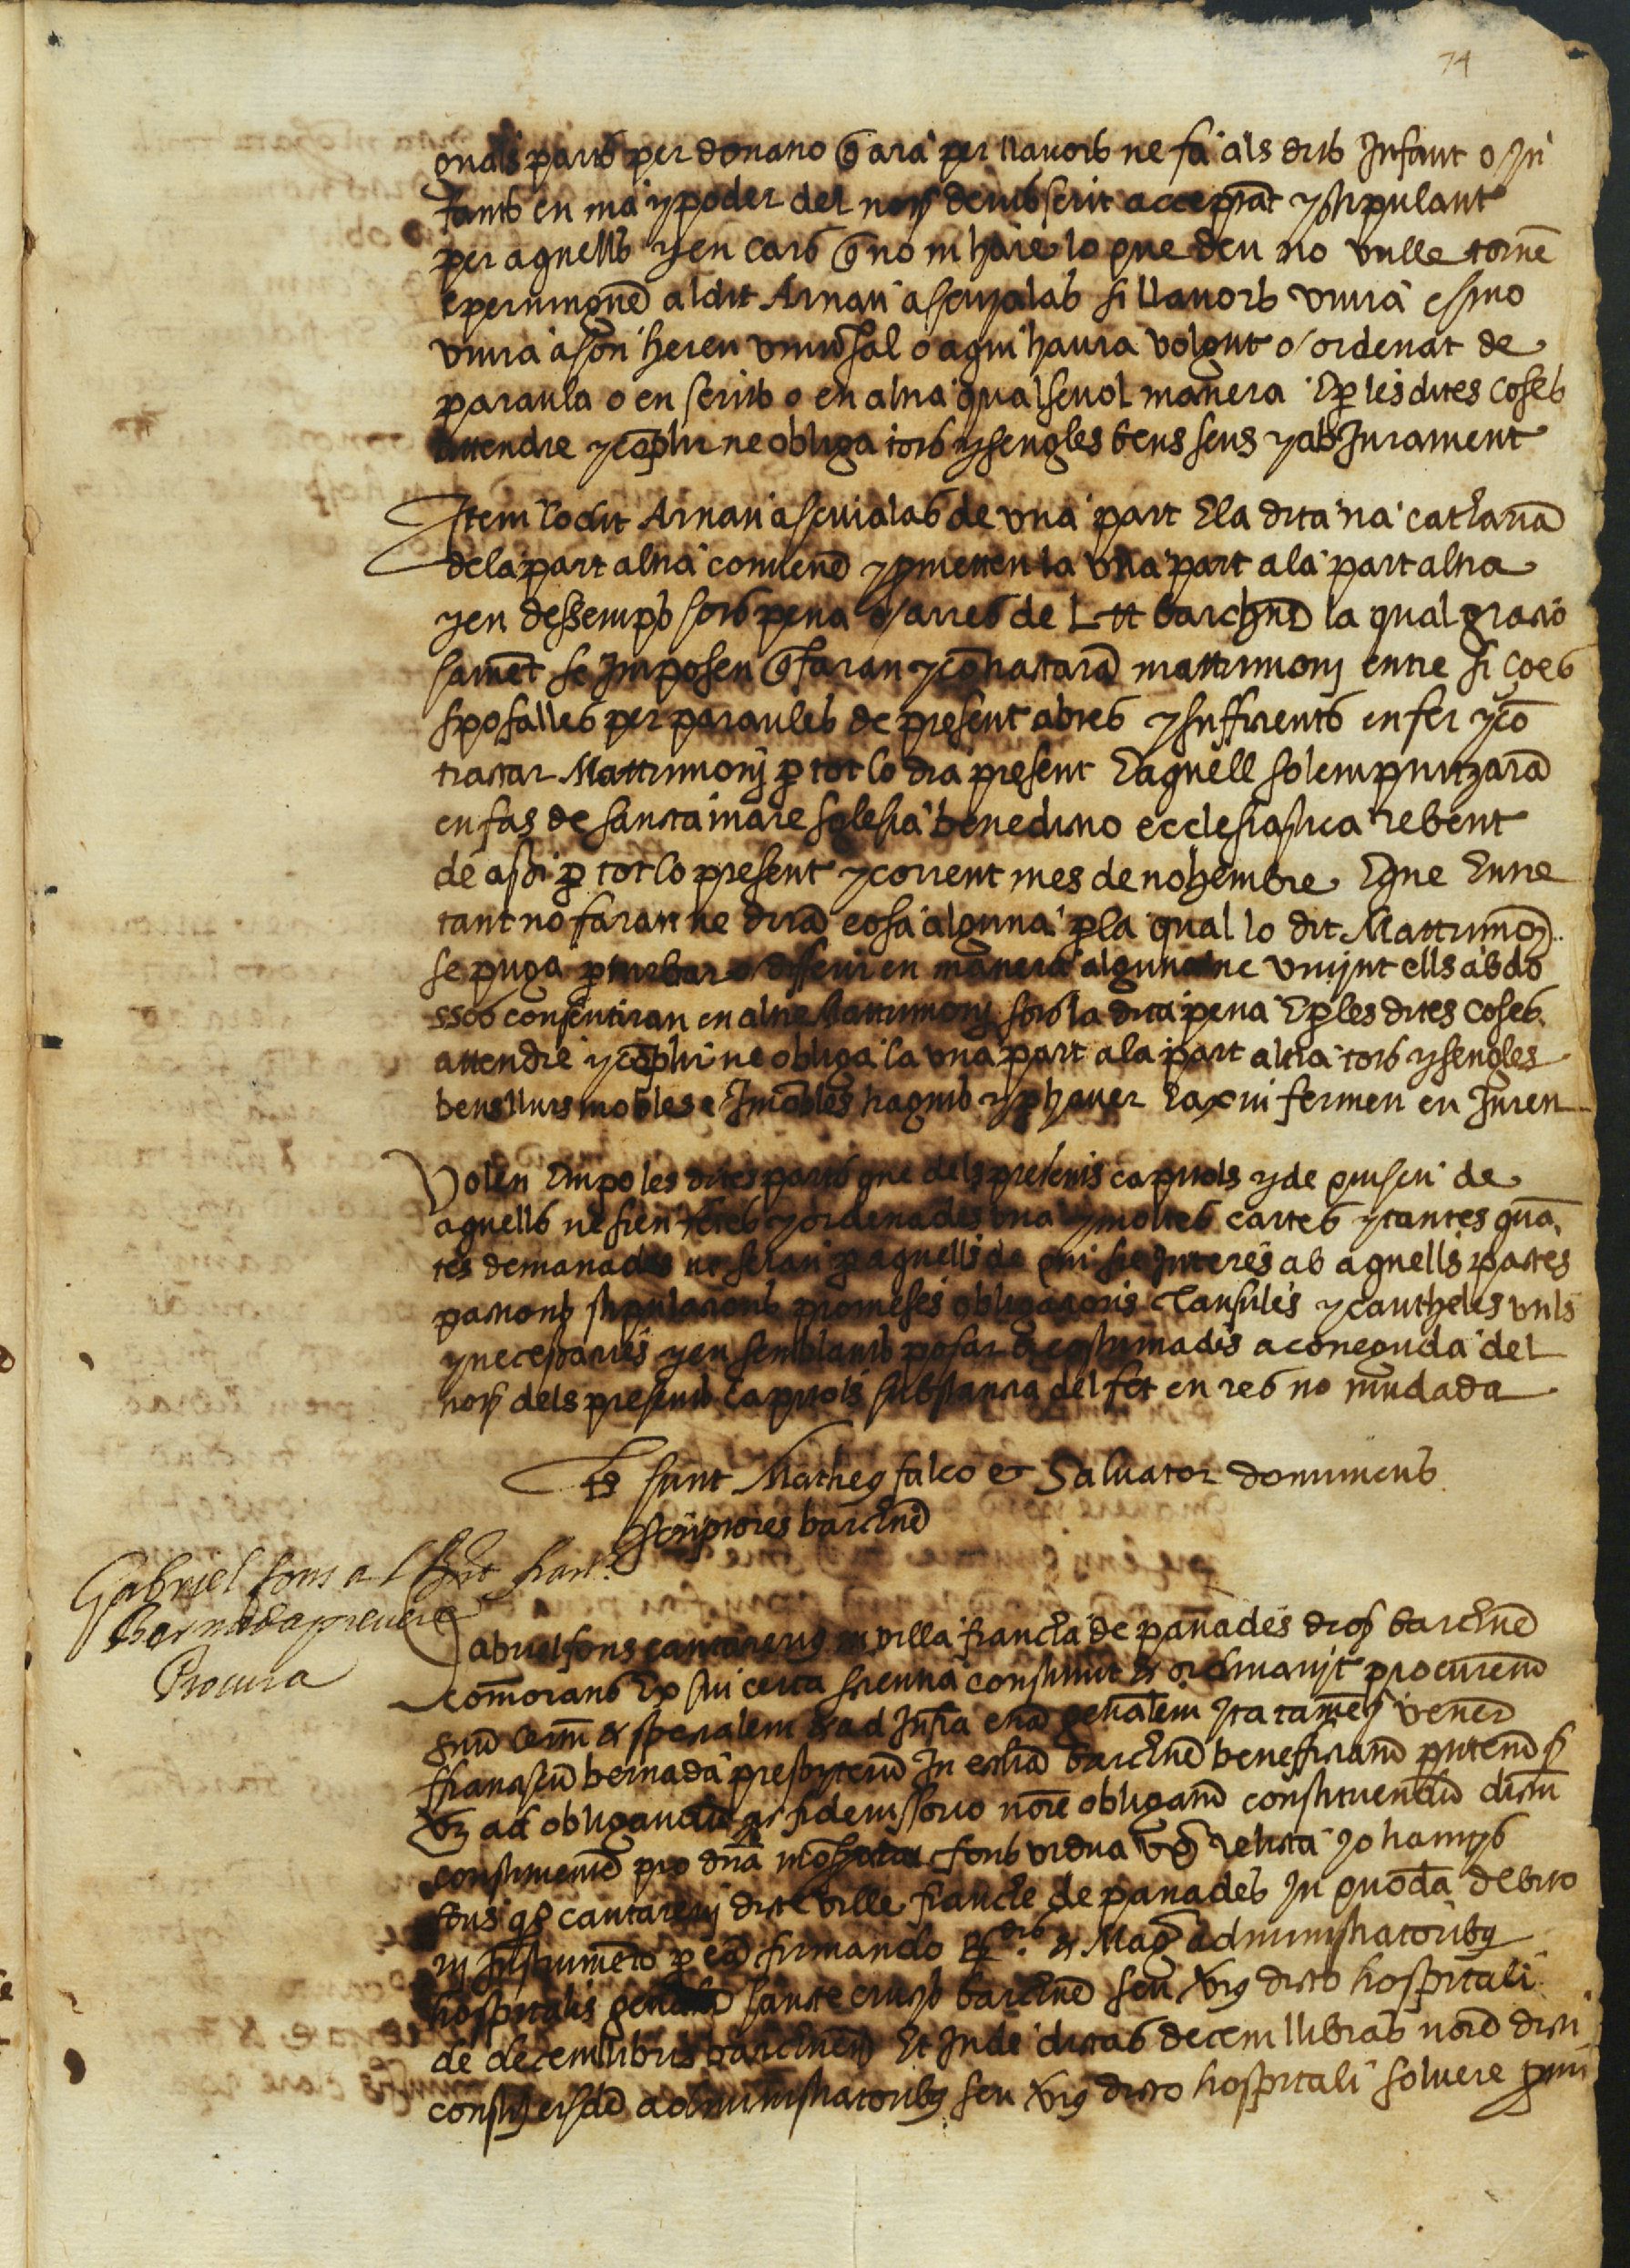 74
guals parts per donatio q ara per llavors ne fa als dits Infant o In
fants en ma y poder del noti devis scrit acceptat y stipulant
per aquells y en cars q no ni haie lo que deu no vulle torne
e pervingue al dit Arnau si llavors viura e si no
viura a son hereu universal o a qui haura volgut o ordenat de
paraula o en scrits o en altra qualsevol manera E p les dites coses
attendre y coplir ne obliga tots y sengles bens seus y ab Jurament
Item lo dit Arnau de una part E la dita na catharia
de la part altra convene y pmetten la una part a la part altra
y en dessemps sots pena o arres de L tt barchne la qual gracio
samet se Imposen q faran y cotractara mattrimonj entre si ço es
sposalles per paraules de present abtes y sufficients en fer y co
tractar Mattrimonj p tot lo dia present E aquell solempnitzara
en fas de sancta mare sglesia benedictio ecclesiastica rebent
de assi p tot lo present y corrent mes de nohembre E que Entre
tant no faran ne dira cosa alguna p la qual lo dit Mattrimoy
se puga pturbar o differir en manera alguna ne vivint ells abdo
ssos consentiran en altre Mattrimonj sots la dita pena E p les dites coses
attendre y coplir ne obliga la una part a la part altra tots y sengles
bens llurs mobles e Imobles haguts y p haver E axi u fermen en Juren
Volen Empo les dites parts que dels presents capitols y de quiscu de
aquells ne sien fetes y ordenades una y moltes cartes y tantes qua
tes demanades ne seran p aquells de qui sie Interes ab aquells pactes
pactions stipulations promeses obligations clausules y cautheles utils
y necessaries y en semblants posar acostumades a coneguda del
noti dels presents capitols substancia del fet en res no mudada
Ts sunt Matheus falco et Salvator domimenis
scriptores barchne
Gabriel fons
Bernada prevere
Procura
Gabriel fons cantarerius in villa francha de panades dioc barchne
comorans Ex sui certa scientia constituit et ordinavit procurem
suu certum et specialem et ad Infra etia generalem Ita tame vener
ffranciscu bernada presbyteru In ecclia barchne benefficiatu pntem
vz ad obligandu ac fideiussorio noie obligand constituendu dictu
constituente pro dna fons vidua ux relicta Johannis
fons qo cantarerij dicte ville franche de panades In quoda debito
rij Instrumeto p ea firmando Rdis et Magcis administratoribus
hospitalis generalis sancte crucis barchne seu verius dicto hospitali
de decem libris barchne Et Inde dictas decem llibras noie dicti
constis eisde administratoribus seu verius dicto hospitali solvere pmi